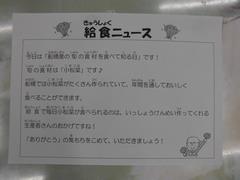 きゅうしょく
給食ニュース
今日は「船橋産の旬の食材を食べて知る日」です!
旬の食材は「小松菜」です♪
船橋では小松菜がたくさん作られていて、年間を通しておいしく
食べることができます。
給食で毎日小松菜が食べられるのは、いっしょうけんめい作ってくれる
生産者さんのおかげですね!
「ありがとう」の気もちをこめて、いただきましょう!